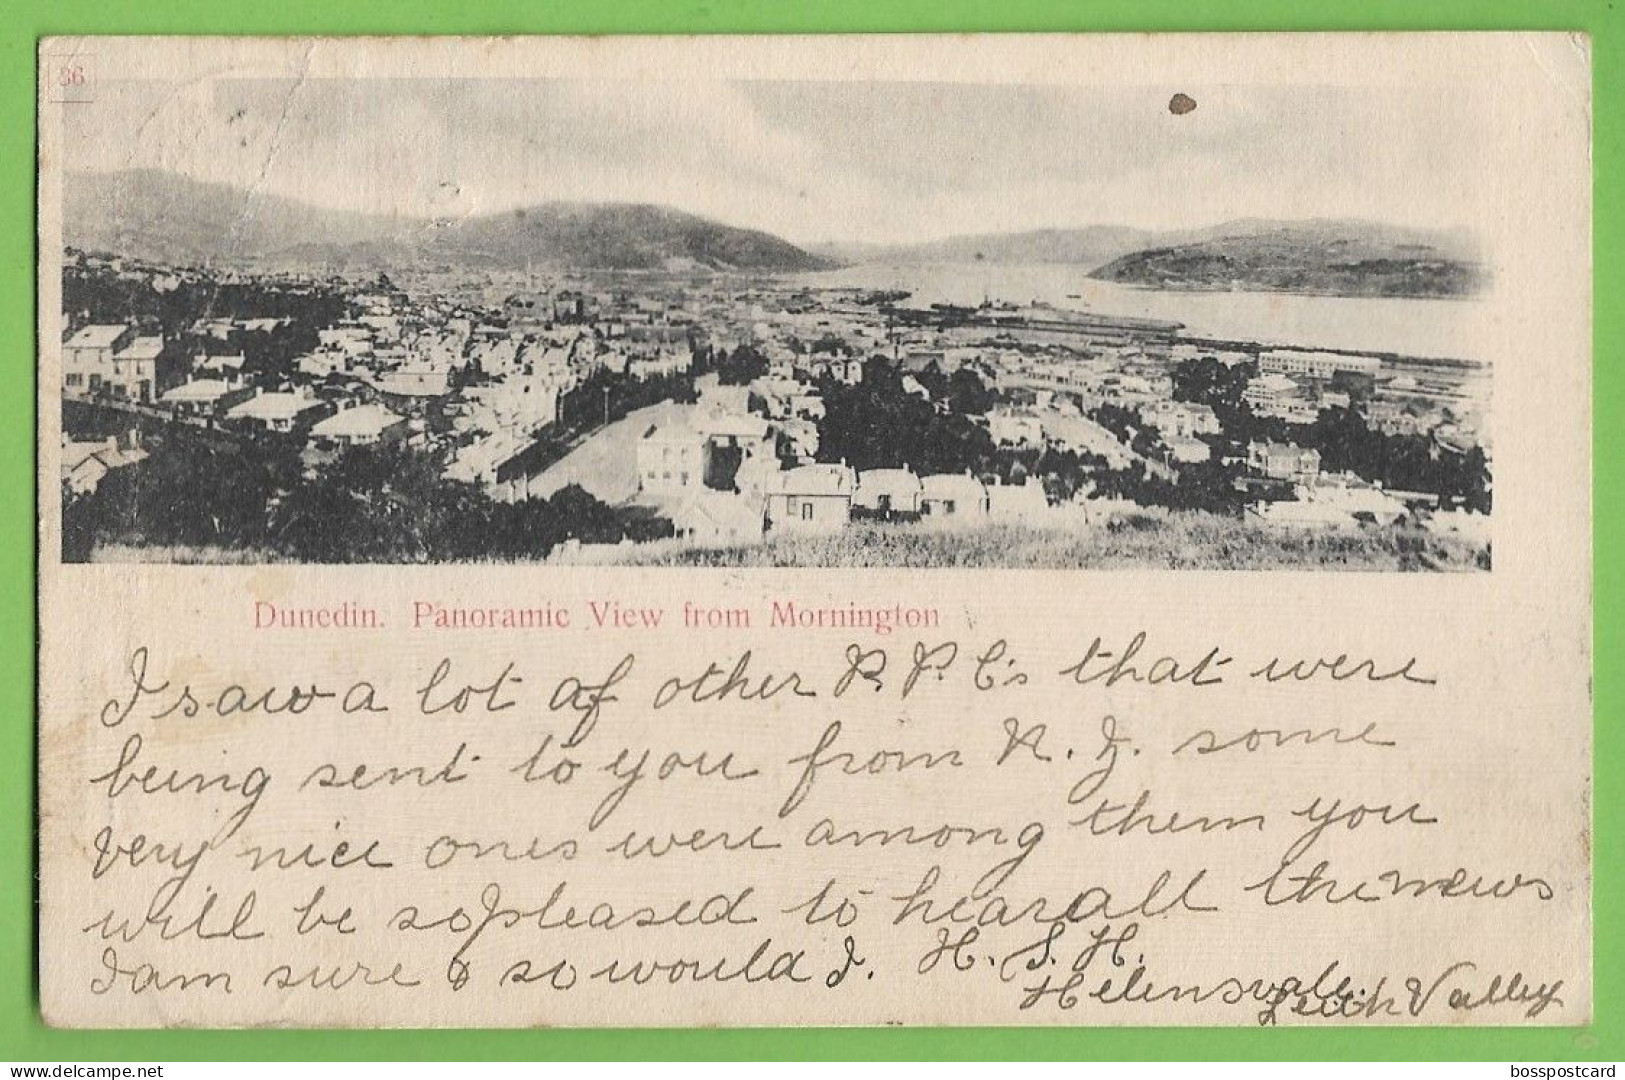 36
Dunedin. Panoramic View from Mornington
I saw a lot of other P. P. C's that were
being sent to you from N. Z. some
very nice ones were among them you
will be so pleased to hear all the news
I am sure & so would I. H. S. H.
Helensvale.
Leith Valley
bosspostcard